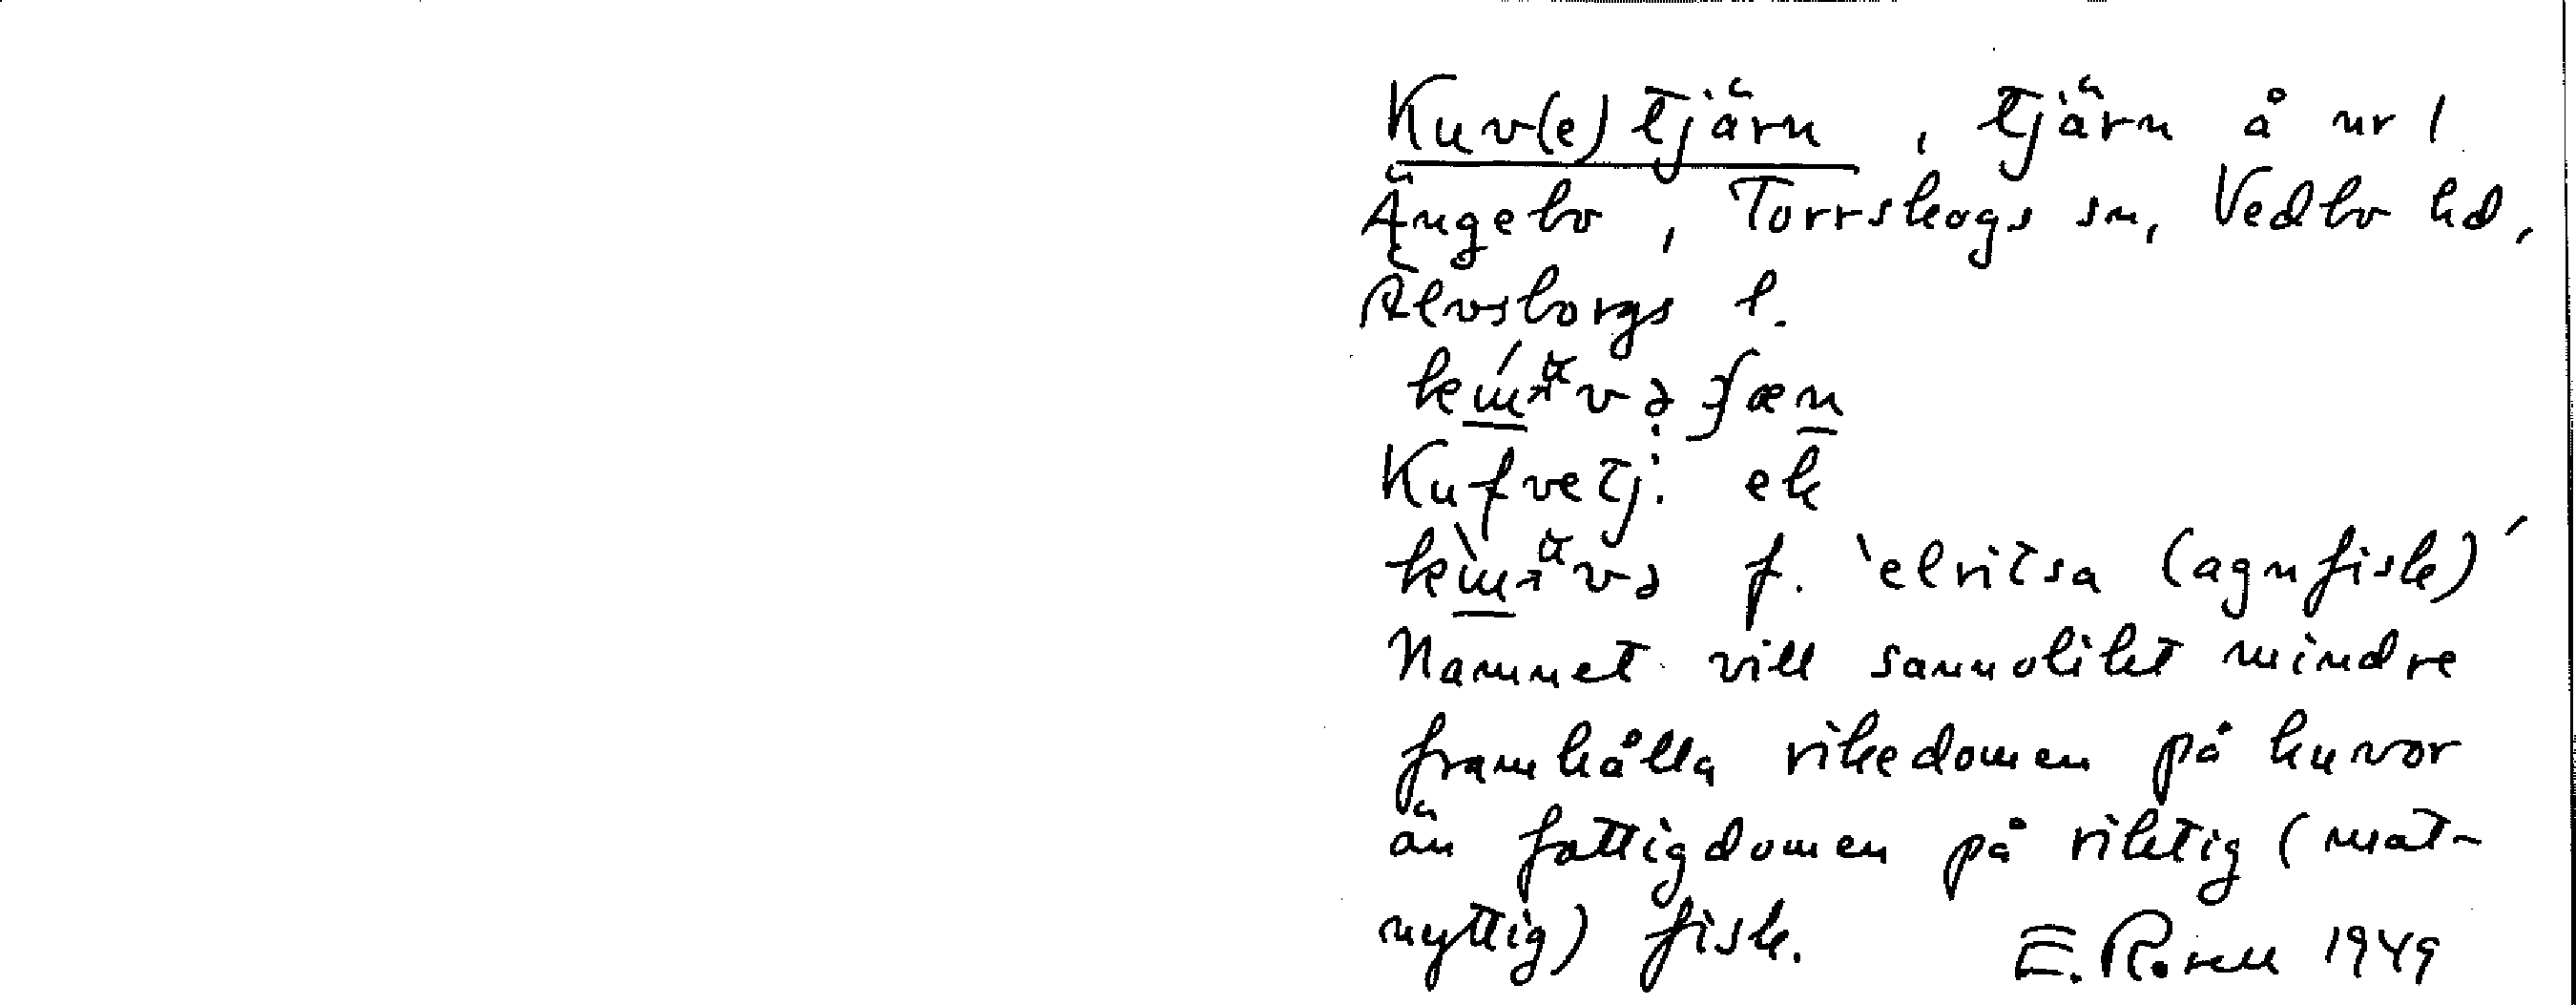 Kuv(e)tjärn, tjärn å nr 1
Ängebo, Torrskogs sn, Vedbo hd,
Älvsborgs l.
Kufvetj. ek
f. 'elritsa (agnfisk)'
Namnet vill sannolikt mindre
framhålla rikedomen på kuvor
än fattigdomen på riktig (mat-
nyttig) fisk.
E. 1949